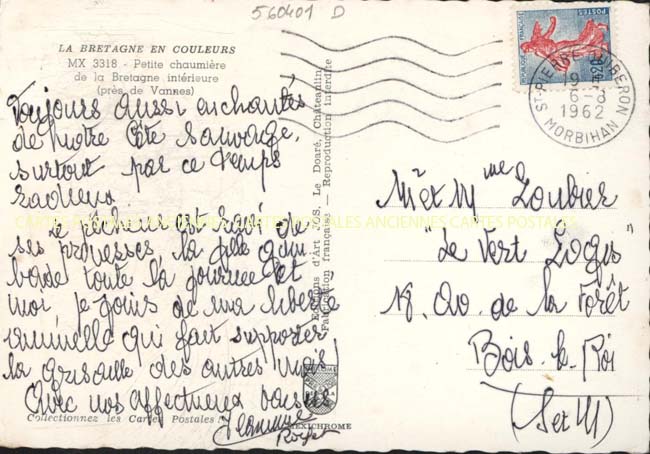 560401 D
LA BRETAGNE EN COULEURS
MX 3318 - Petite chaumière
de la Bretagne intérieure
(près de Vannes)
Toujours aussi enchantés
de notre Côte Sauvage,
surtout par ce temps
radieux.
Le pêcheur est ravi de
ses prouesses, la fille gam
bade toute la journée et
moi, je jouis de ma liberté
annuelle qui fait supporter
la grisaille des autres mois
Avec nos affectueux baisers
Jeannine
Collectionnez les Cartes Postales
Editions d'Art JOS. Le Doaré, Châteaulin
Fabrication française - Reproduction interdite
MEXICHROME
REPUBLIQUE FRANÇAISE
POSTES
ST-PIERRE-QUIBERON
1962
MORBIHAN
Mr et Mme Loubier
"Le Vert Logis"
18. Av. de la Forêt
Bois-le-Roi
(S et M)
CARTES POSTALES ANCIENNES CARTES POSTALES ANCIENNES CARTES POSTALES